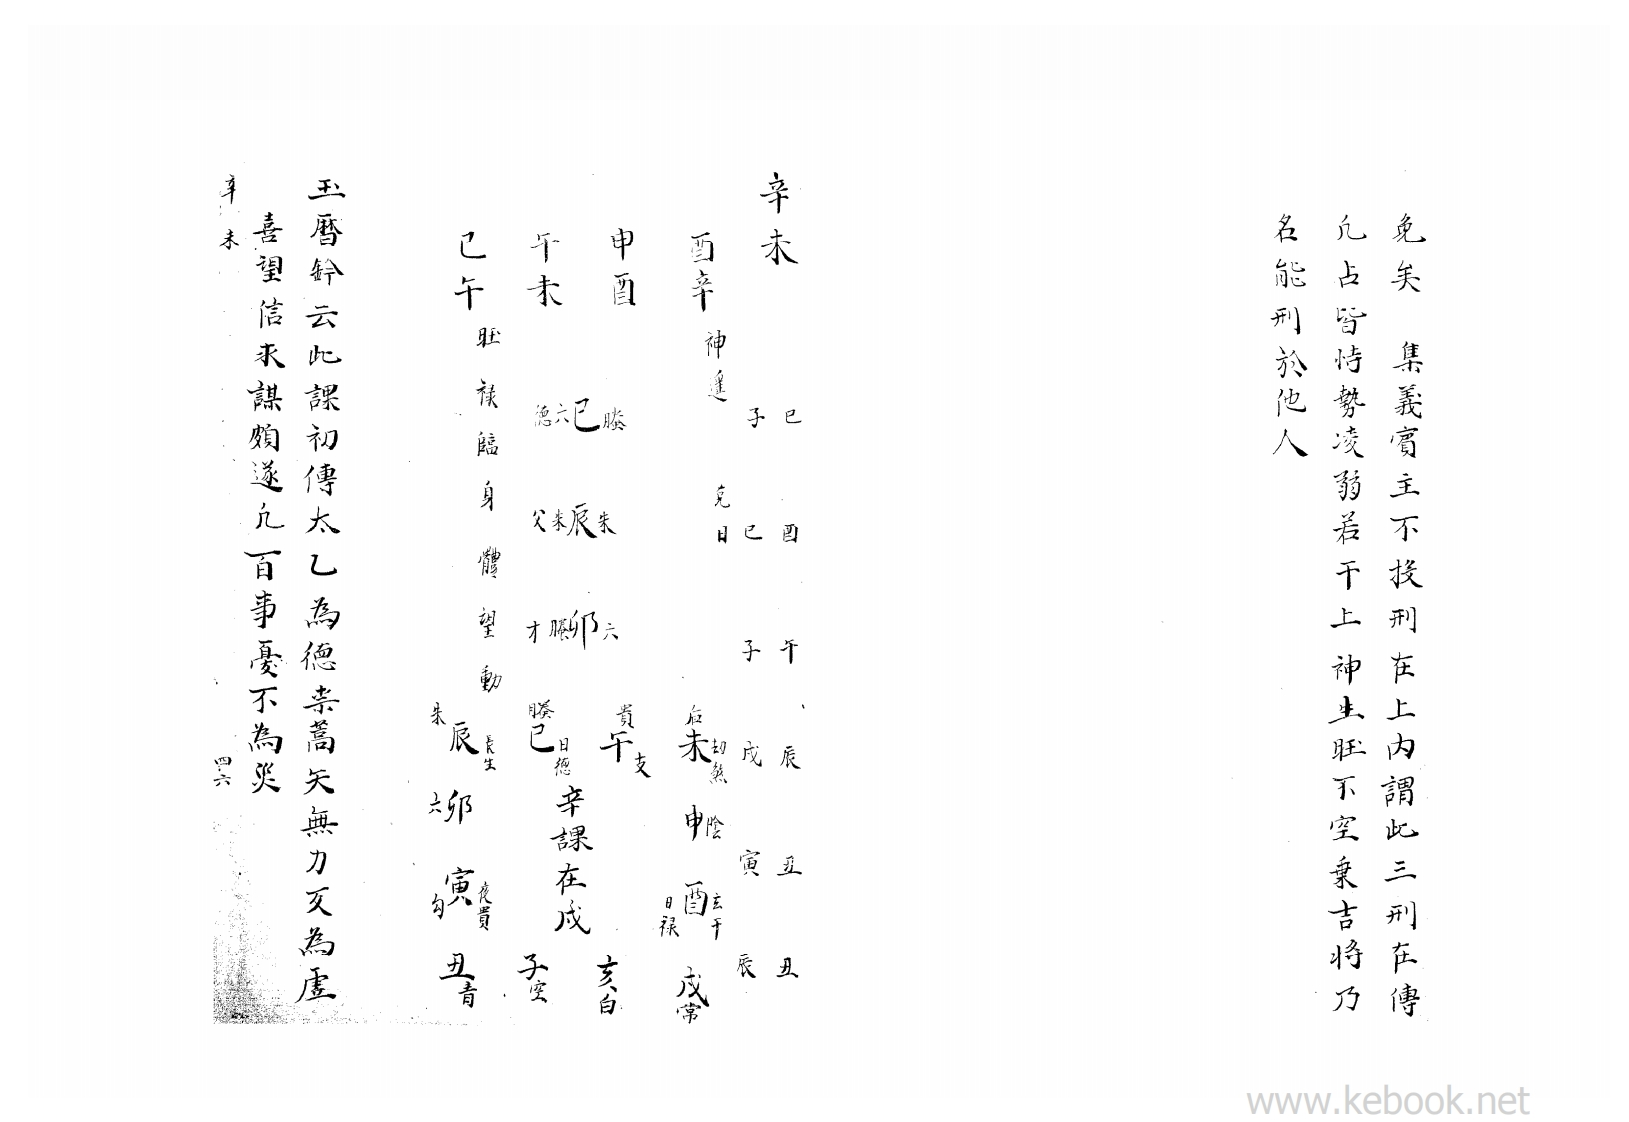 免矣　集義賓主不投刑在上内謂此三刑在傳
凡占皆恃勢凌弱若干上神生旺不空乗吉将乃
名能刑於他人
辛未
巳 酉 午 辰 丑 丑
子 巳 子 戌 寅 辰
克日
酉辛 神遥
后未劫煞 申陰 日禄酉玄干 戌常
申酉
螣巳六德
朱辰朱父
六卯螣才
貴午支 亥白
午未
螣巳日德 辛課在戌 子空
巳午 旺禄臨身體望動
朱辰長生 六卯 勾寅夜貴 丑青
玉曆鈐云此課初傳太乙為德柰蒿矢無力又為虛
喜望信求謀頗遂凡百事憂不為災
辛未 四六
www.kebook.net